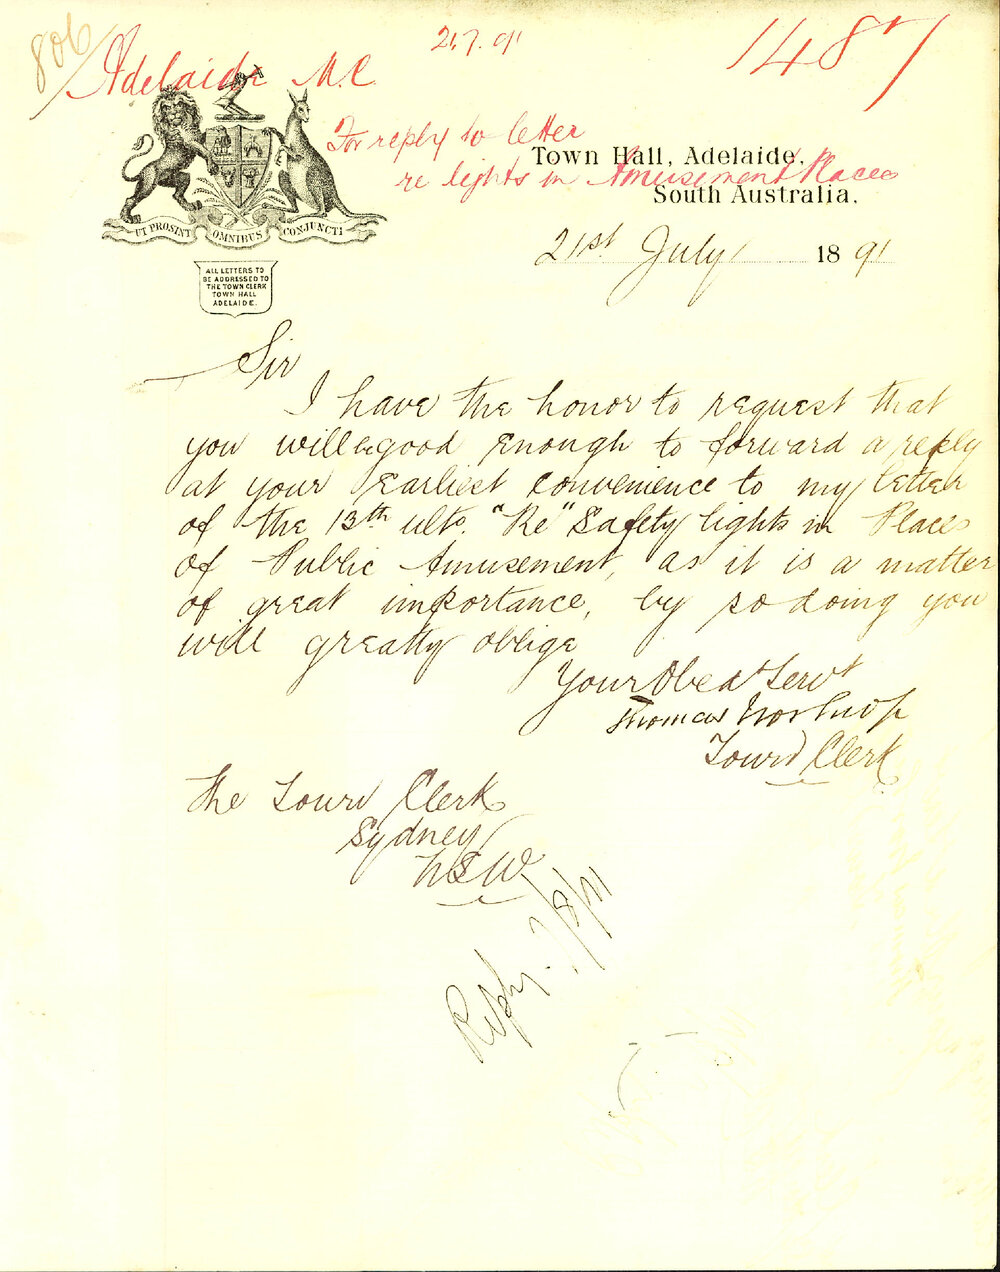 806
21.7.91
1487
Adelaide M.C.
For reply to letter
re lights in Amusement Places
Town Hall, Adelaide,
South Australia.
UT PROSINT OMNIBUS CONJUNCTI
21st July 1891
ALL LETTERS TO
BE ADDRESSED TO
THE TOWN CLERK
TOWN HALL
ADELAIDE.
Sir
I have the honor to request that
you will be good enough to forward a reply
at your earliest convenience to my letter
of the 13th ulto. "Re" Safety lights in Places
of Public Amusement, as it is a matter
of great importance, by so doing you
will greatly oblige
Your Obedt Servt
Thomas Worsnop
Town Clerk
The Town Clerk
Sydney
NSW
Reply. 7/8/91